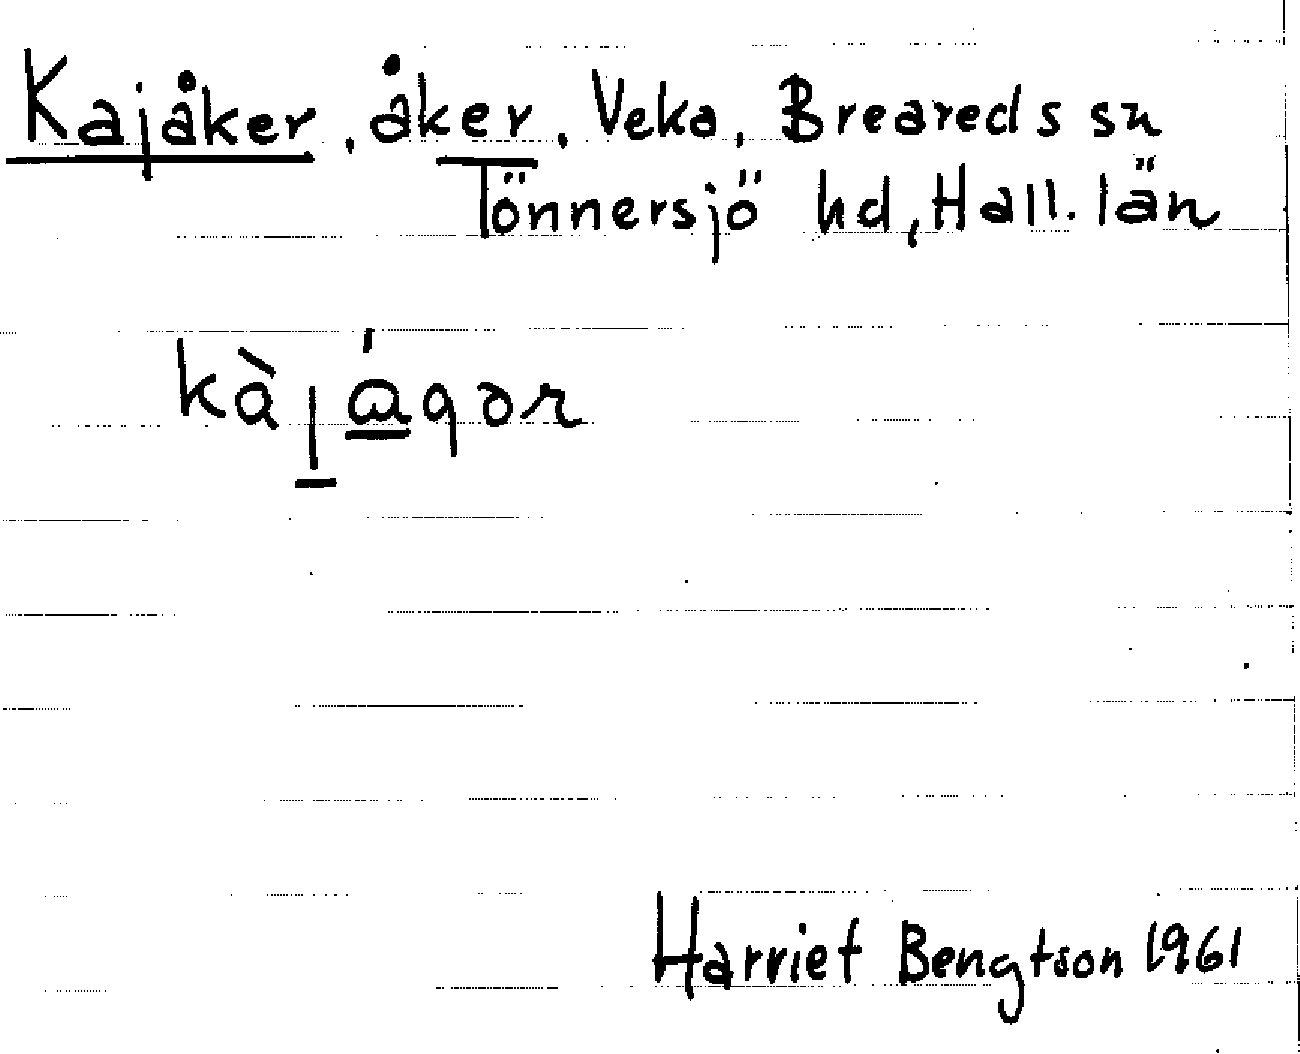 Kajåker, åker, Veka, Breareds sn
Tönnersjö hd, Hall. län
kàȷágər
Harriet Bengtson 1961